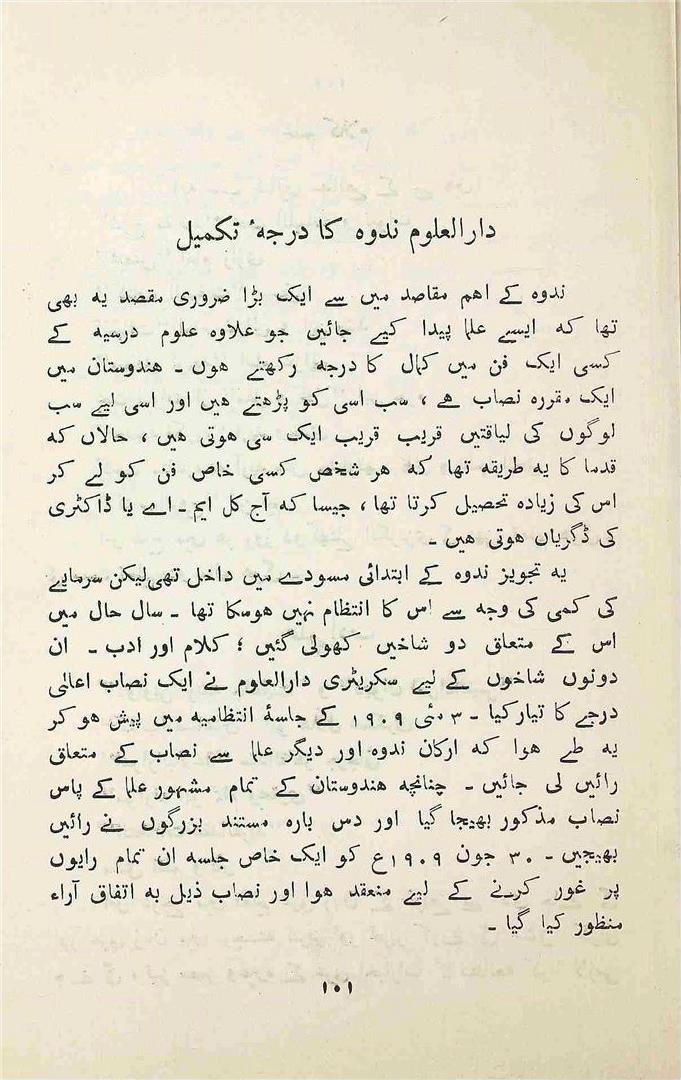 دارالعلوم ندوہ کا درجۂ تکمیل
ندوہ کے اہم مقاصد میں سے ایک بڑا ضروری مقصد یہ بھی
تھا کہ ایسے علما پیدا کیے جائیں جو علاوہ علوم درسیہ کے
کسی ایک فن میں کمال کا درجہ رکھتے ہوں ۔ ہندوستان میں
ایک مقررہ نصاب ہے ، سب اسی کو پڑھتے ہیں اور اسی لیے سب
لوگوں کی لیاقتیں قریب قریب ایک سی ہوتی ہیں ، حالاں کہ
قدما کا یہ طریقہ تھا کہ ہر شخص کسی خاص فن کو لے کر
اس کی زیادہ تحصیل کرتا تھا ، جیسا کہ آج کل ایم ۔ اے یا ڈاکٹری
کی ڈگریاں ہوتی ہیں ۔
یہ تجویز ندوہ کے ابتدائی مسودے میں داخل تھی لیکن سرمایے
کی کمی کی وجہ سے اس کا انتظام نہیں ہوسکا تھا ۔ سال حال میں
اس کے متعلق دو شاخیں کھولی گئیں ؛ کلام اور ادب ۔ ان
دونوں شاخوں کے لیے سکریٹری دارالعلوم نے ایک نصاب اعلیٰ
درجے کا تیار کیا ۔ ۳ مئی ۱۹۰۹ کے جلسۂ انتظامیہ میں پیش ہو کر
یہ طے ہوا کہ ارکان ندوہ اور دیگر علما سے نصاب کے متعلق
رائیں لی جائیں ۔ چنانچہ ہندوستان کے تمام مشہور علما کے پاس
نصاب مذکور بھیجا گیا اور دس بارہ مستند بزرگوں نے رائیں
بھیجیں ۔ ۳۰ جون ۱۹۰۹ع کو ایک خاص جلسہ ان تمام رایوں
پر غور کرنے کے لیے منعقد ہوا اور نصاب ذیل بہ اتفاق آراء
منظور کیا گیا ۔
۱۰۱